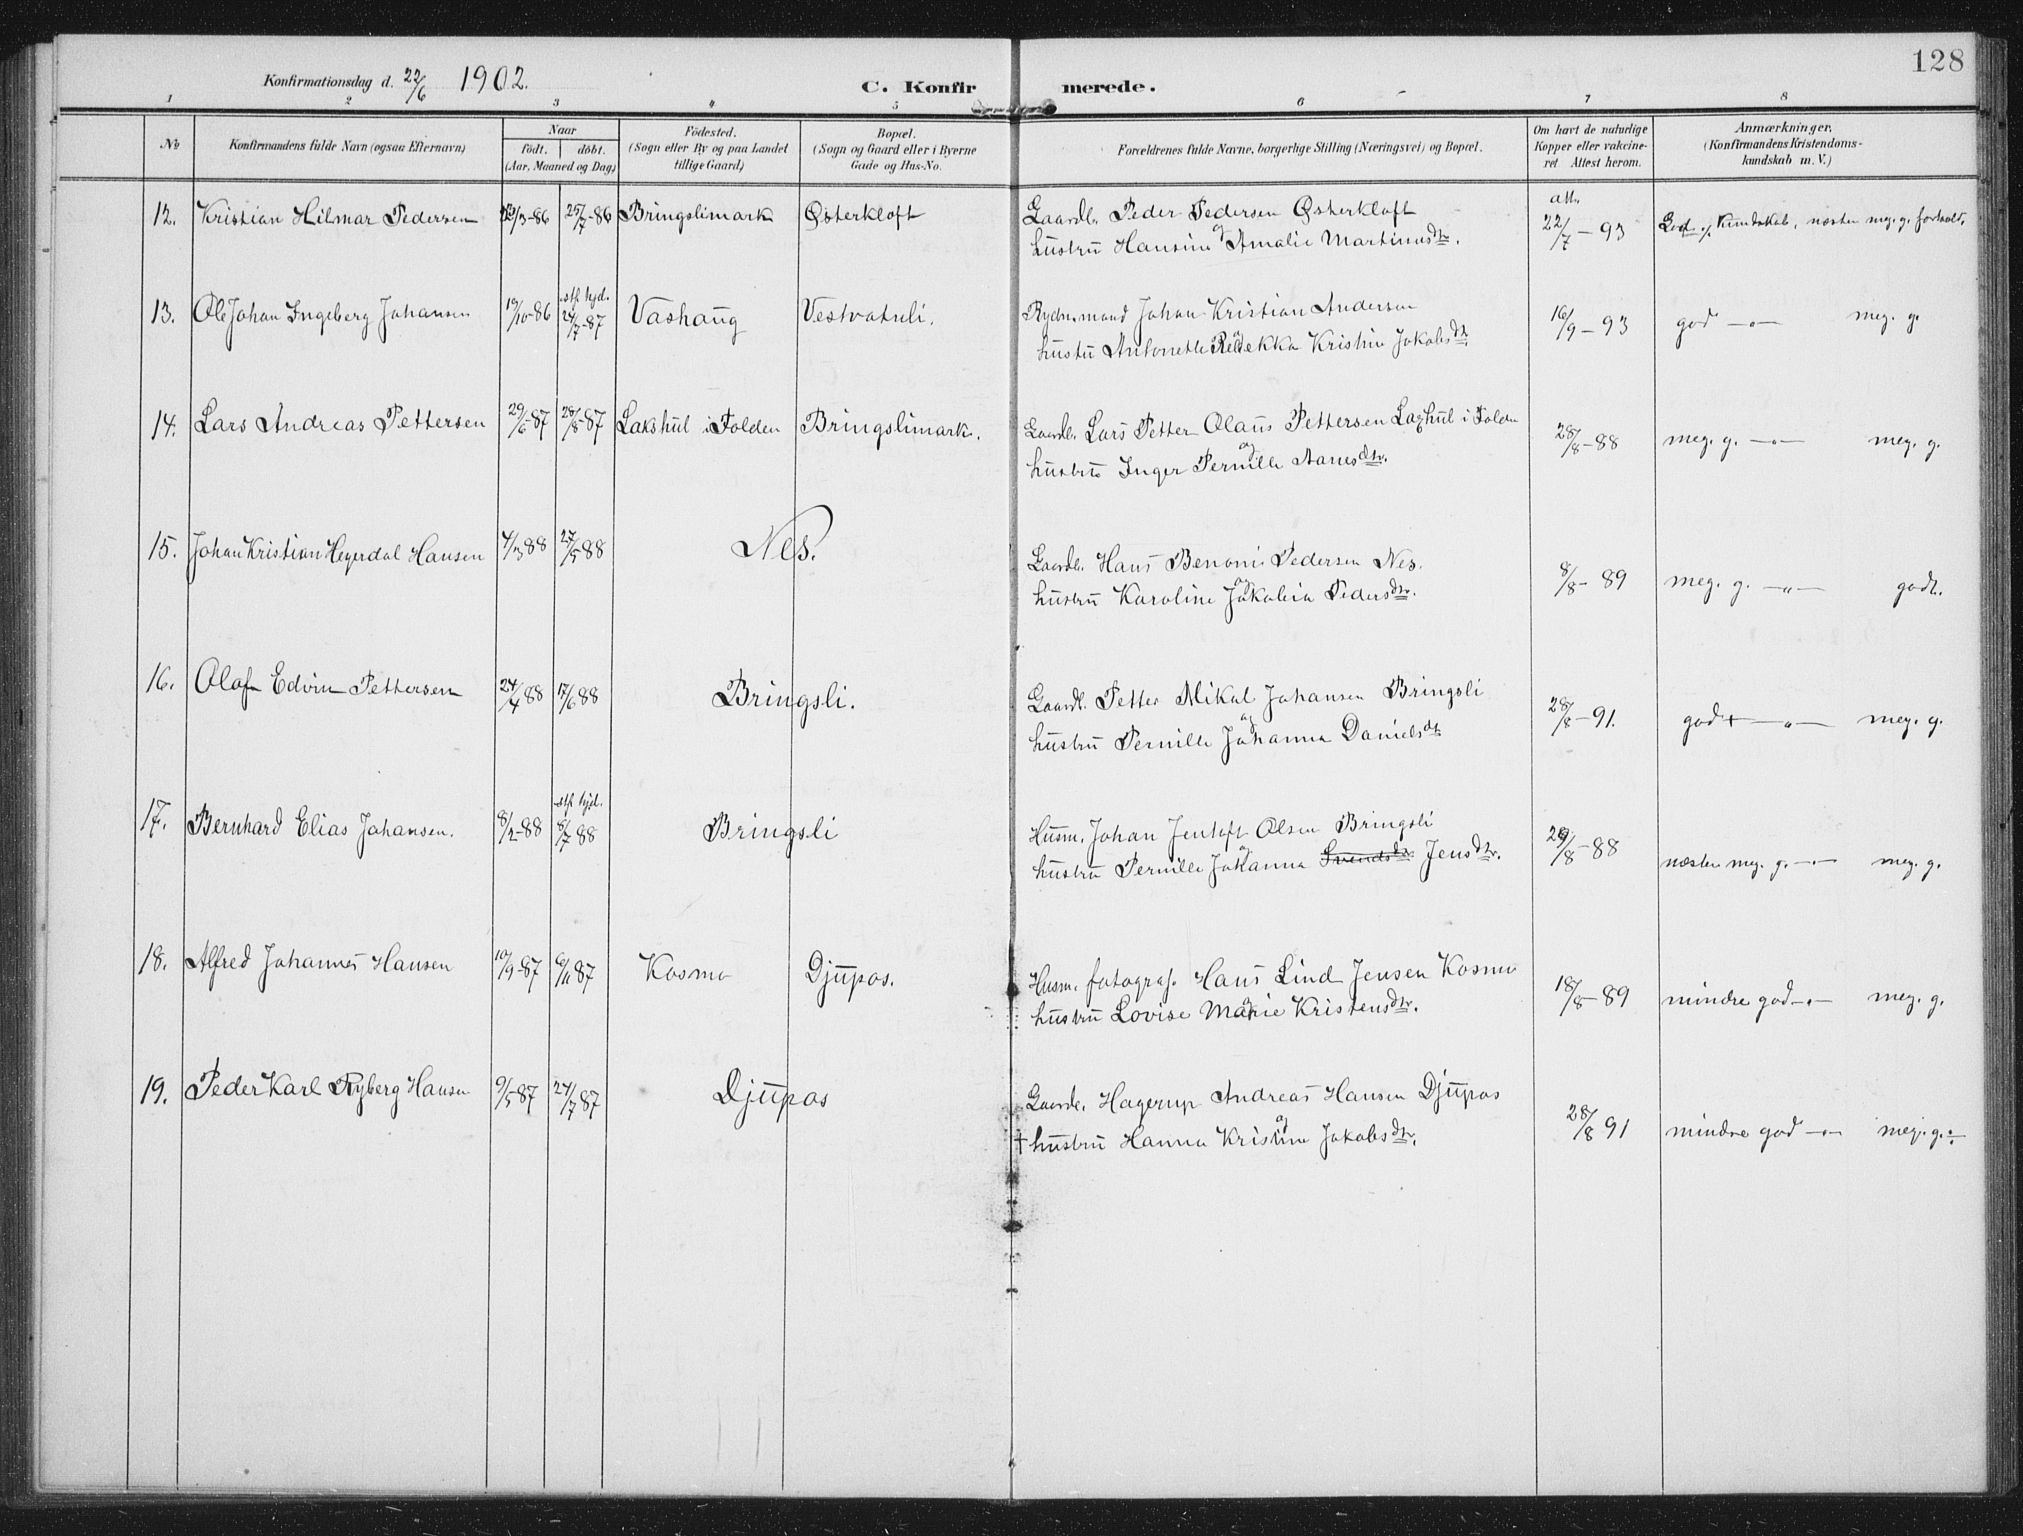 128
Konfirmationsdag d. 22/6 1902. C. Konfirmerede.
1 2 3 4 5 6 7 8
No Konfirmandens fulde Navn (ogsaa Efternavn) Naar födt. döbt. (Aar, Maaned og Dag) Födested. (Sogn eller By og paa Landet tillige Gaard) Bopæl. (Sogn og Gaard eller i Byerne Gade og Hus-No. Forældrenes fulde Navne, borgerlige Stilling (Næringsvei) og Bopæl. Om havt de naturlige Kopper eller vakcineret Attest herom. Anmærkninger. (Konfirmandens Kristendomskundskab m. V.)
12. Kristian Hilmar Pedersen /3-86 25/7-86 Bringslimark Østerkløft Gaardb. Peder Pedersen Østerkløft att. 22/7-93 God Kundskab, næsten meg. g. forhold.
og
hustru Hansine Amalie Martinusdtr.
13. Ole Johan Ingeberg Johansen 19/10-86 stf. hjd. 24/7-87 Vashaug Vestvatnli. Rydn.mand Johan Kristian Andersen 16/9-93 god -"- meg. g.
og
hustru Antonette Rebekka Kristine Jakobsdtr.
14. Lars Andreas Pettersen 29/6-87 28/8-87 Lakshul i Folden Bringslimark. Gaardb. Lars Petter Olaus Pettersen Laxhul i Folden 28/8-88 meg. g. -"- meg. g.
og
hustru Inger Pernille Aanesdtr.
15. Johan Kristian Heyerdal Hansen 4/3 88 27/5 88 Nes. Gaardb. Hans Benoni Pedersen Nes. 8/8-89 meg. g. -"- godt.
og
hustru Karoline Jakobia Pedersdtr.
16. Olaf Edvin Pettersen 24/4 88 17/6 88 Bringsli. Gaardb. Petter Mikal Johansen Bringsli 28/8-91. god -"- meg. g.
og
hustru Pernille Johanna Danielsdt
17. Bernhard Elias Johansen. 8/2-88 stf. hjd. 8/7 88 Bringsli Husm. Johan Jentoft Olsen Bringsli 29/8-88 næsten meg. g. -"- meg. g.
og
hustru Pernille Johanna Svendsdtr. Jensdtr.
18. Alfred Johannes Hansen 10/9-87 6/11 87 Kosmo Djupos. Husm. fotograf. Hans Lind Jensen Kosmo 18/8-89 mindre god -"- meg. g.
og
hustru Lovise Marie Kristensdtr.
19. Peder Karl Ryberg Hansen 9/5 87 24/7 87 Djupos Gaardb. Hagerup Andreas Hansen Djupos 28/8 91 mindre god -"- meg. g.
og
† hustru Hanna Kristine Jakobsdtr.